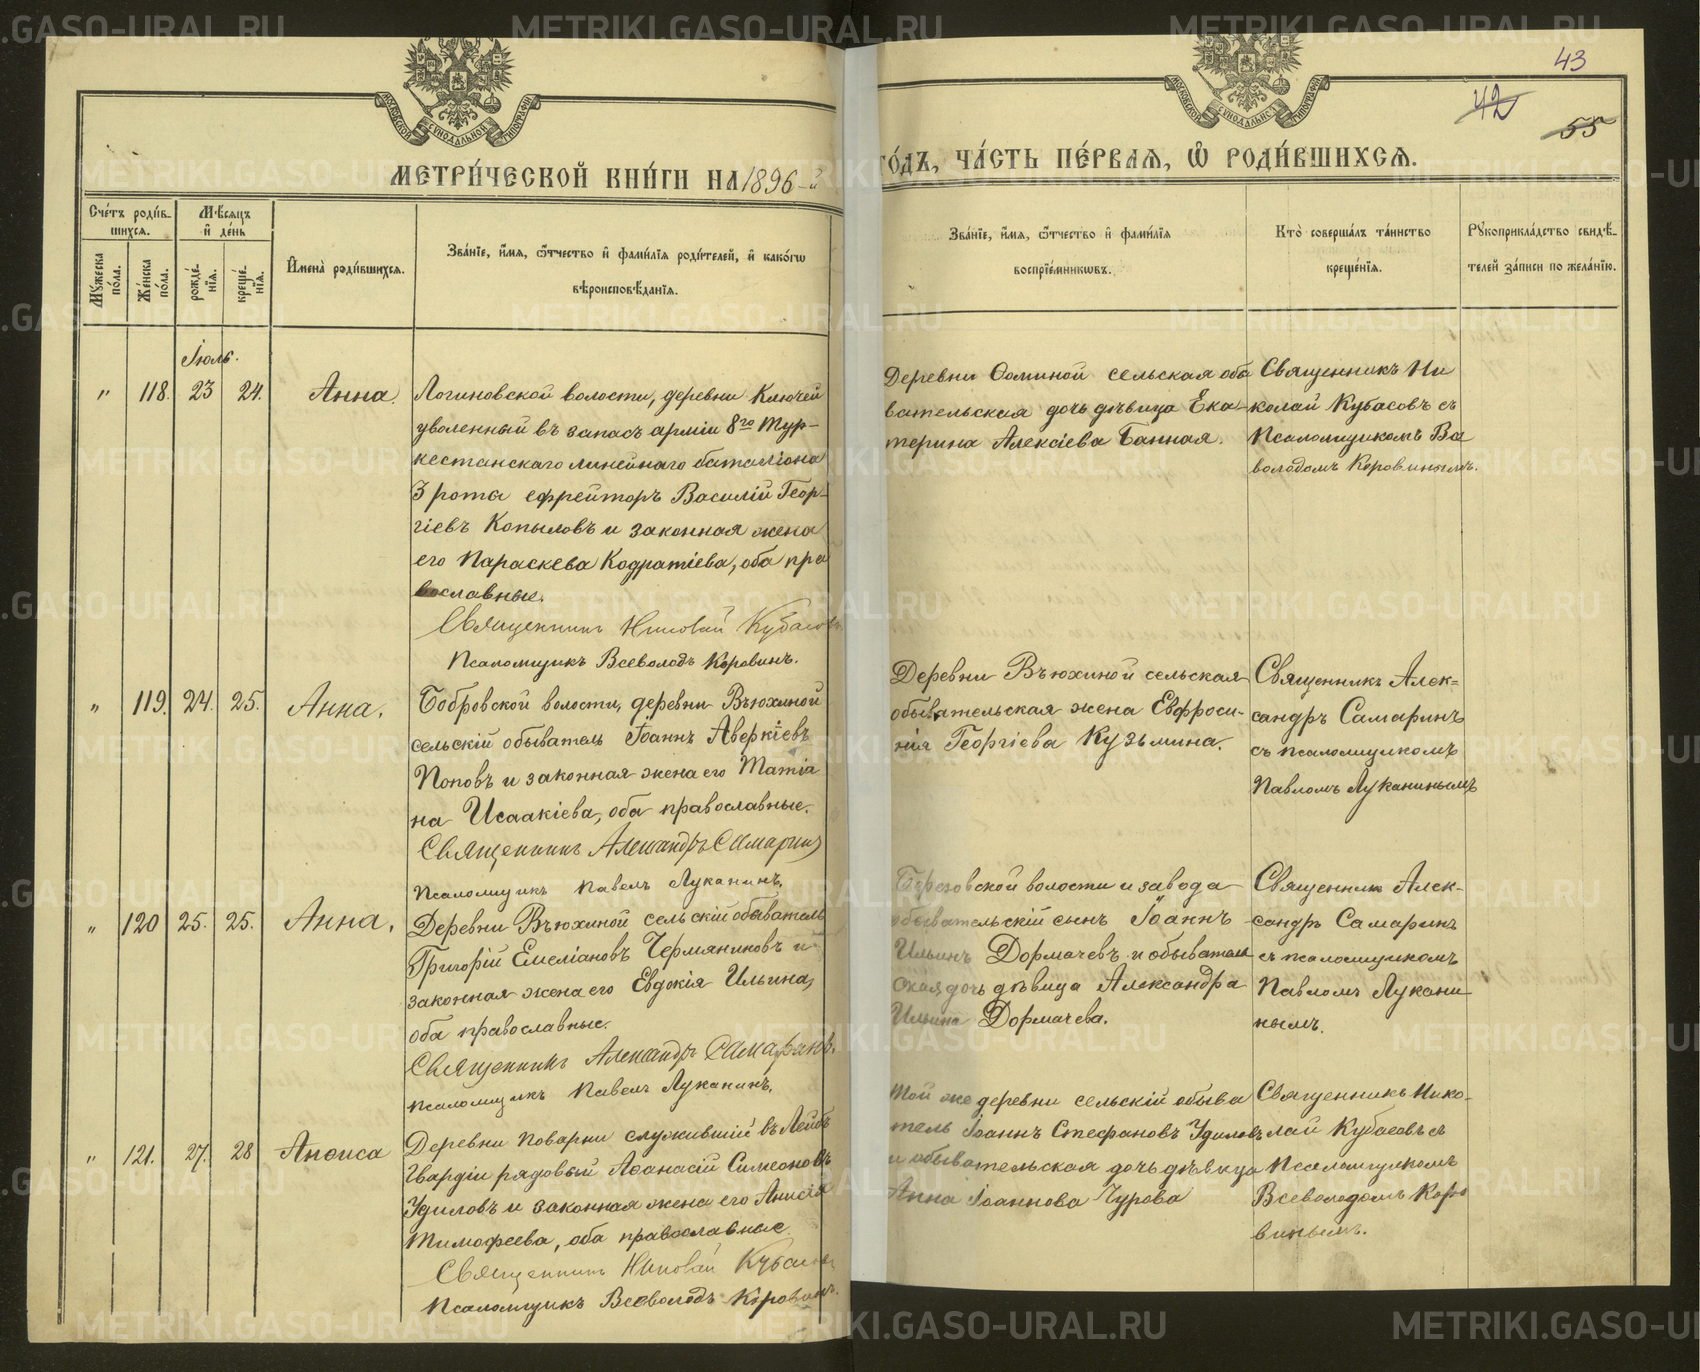 43
42
55
МОСКОВСКОЙ СѴНОДАЛЬНОЙ ТИПОГРАФІИ
МЕТРИ́ЧЕСКОЙ КНИ́ГИ НА 1896-й
ГО́ДЪ, ЧА́СТЬ ПЕ́РВАѦ, Ѽ РОДИ́ВШИХСѦ.
Сче́тъ роди́в-
шихся.
Мꙋ́жеска по́ла.
Же́нска по́ла.
Мѣ́сяцъ
и҆ де́нь
рожде́нїя.
креще́нїя.
И҆мена̀ роди́вшихся.
Зва́нїе, и҆́мя, ѻ҆́тчество и҆ фами́лїя роди́телей, и҆ како́гѡ
вѣроисповѣ́данїя.
Зва́нїе, и҆́мя, ѻ҆́тчество и҆ фами́лїя
воспрїе́мникѡвъ.
Кто̀ соверша́лъ та́инство
креще́нїя.
Рꙋкоприкла́дство свидѣ́-
телей за́писи по жела́нїю.
Іюль.
" 118. 23 24. Анна.
Логиновской волости, деревни Ключей
уволенный въ запасъ арміи 8го Тур-
кестанскаго линейнаго баталіона
3 рота ефрейторъ Василій Геор-
гіевъ Копыловъ и законная жена
его Параскева Кодратіева, оба пра
вославные.
Священникъ Николай Кубасовъ
Псаломщикъ Всеволодъ Коровинъ.
Деревни Ѳоминой сельская обы
вательская дочь дѣвица Ека-
терина Алексіева Банная.
Священникъ Ни
колай Кубасовъ съ
Псаломщикомъ Все
володомъ Коровинымъ.
" 119. 24. 25. Анна.
Бобровской волости, деревни Вьюхиной
сельскій обыватель Іоаннъ Аверкіевъ
Поповъ и законная жена его Татіа
на Исаакіева, оба православные.
Священникъ Александръ Самаринъ
Псаломщикъ Павелъ Луканинъ.
Деревни Вьюхиной сельская
обывательская жена Евфроси-
нія Георгіева Кузьмина.
Священникъ Алек=
сандръ Самаринъ
съ псаломщикомъ
Павломъ Луканинымъ
" 120 25. 25. Анна.
Деревни Вьюхиной сельскій обыватель
Григорій Емеліановъ Чермяниновъ и
законная жена его Евдокія Ильина,
оба православные.
Священникъ Александръ Самаринъ.
Псаломщикъ Павелъ Луканинъ.
Березовской волости и завода
обывательскій сынъ Іоаннъ
Ильинъ Дормачевъ и обыватель
ская дочь дѣвица Александра
Ильина Дормачева.
Священникъ Алек-
сандръ Самаринъ
съ псаломщикомъ
Павломъ Лукани-
нымъ.
" 121. 27. 28 Анѳиса
Деревни Поварни служившій въ Лейбъ
Гвардіи рядовый Аѳанасій Симеоновъ
Удиловъ и законная жена его Анисія
Тимофеева, оба православные
Священникъ Николай Кубасовъ
Псаломщикъ Всеволодъ Коровинъ.
Той же деревни сельскій обыва
тель Іоаннъ Стефановъ Удиловъ
и обывательская дочь дѣвица
Анна Іоаннова Чурова
Священникъ Нико-
лай Кубасовъ съ
Псаломщикомъ
Всеволодомъ Коро
винымъ.
METRIKI.GASO-URAL.RU